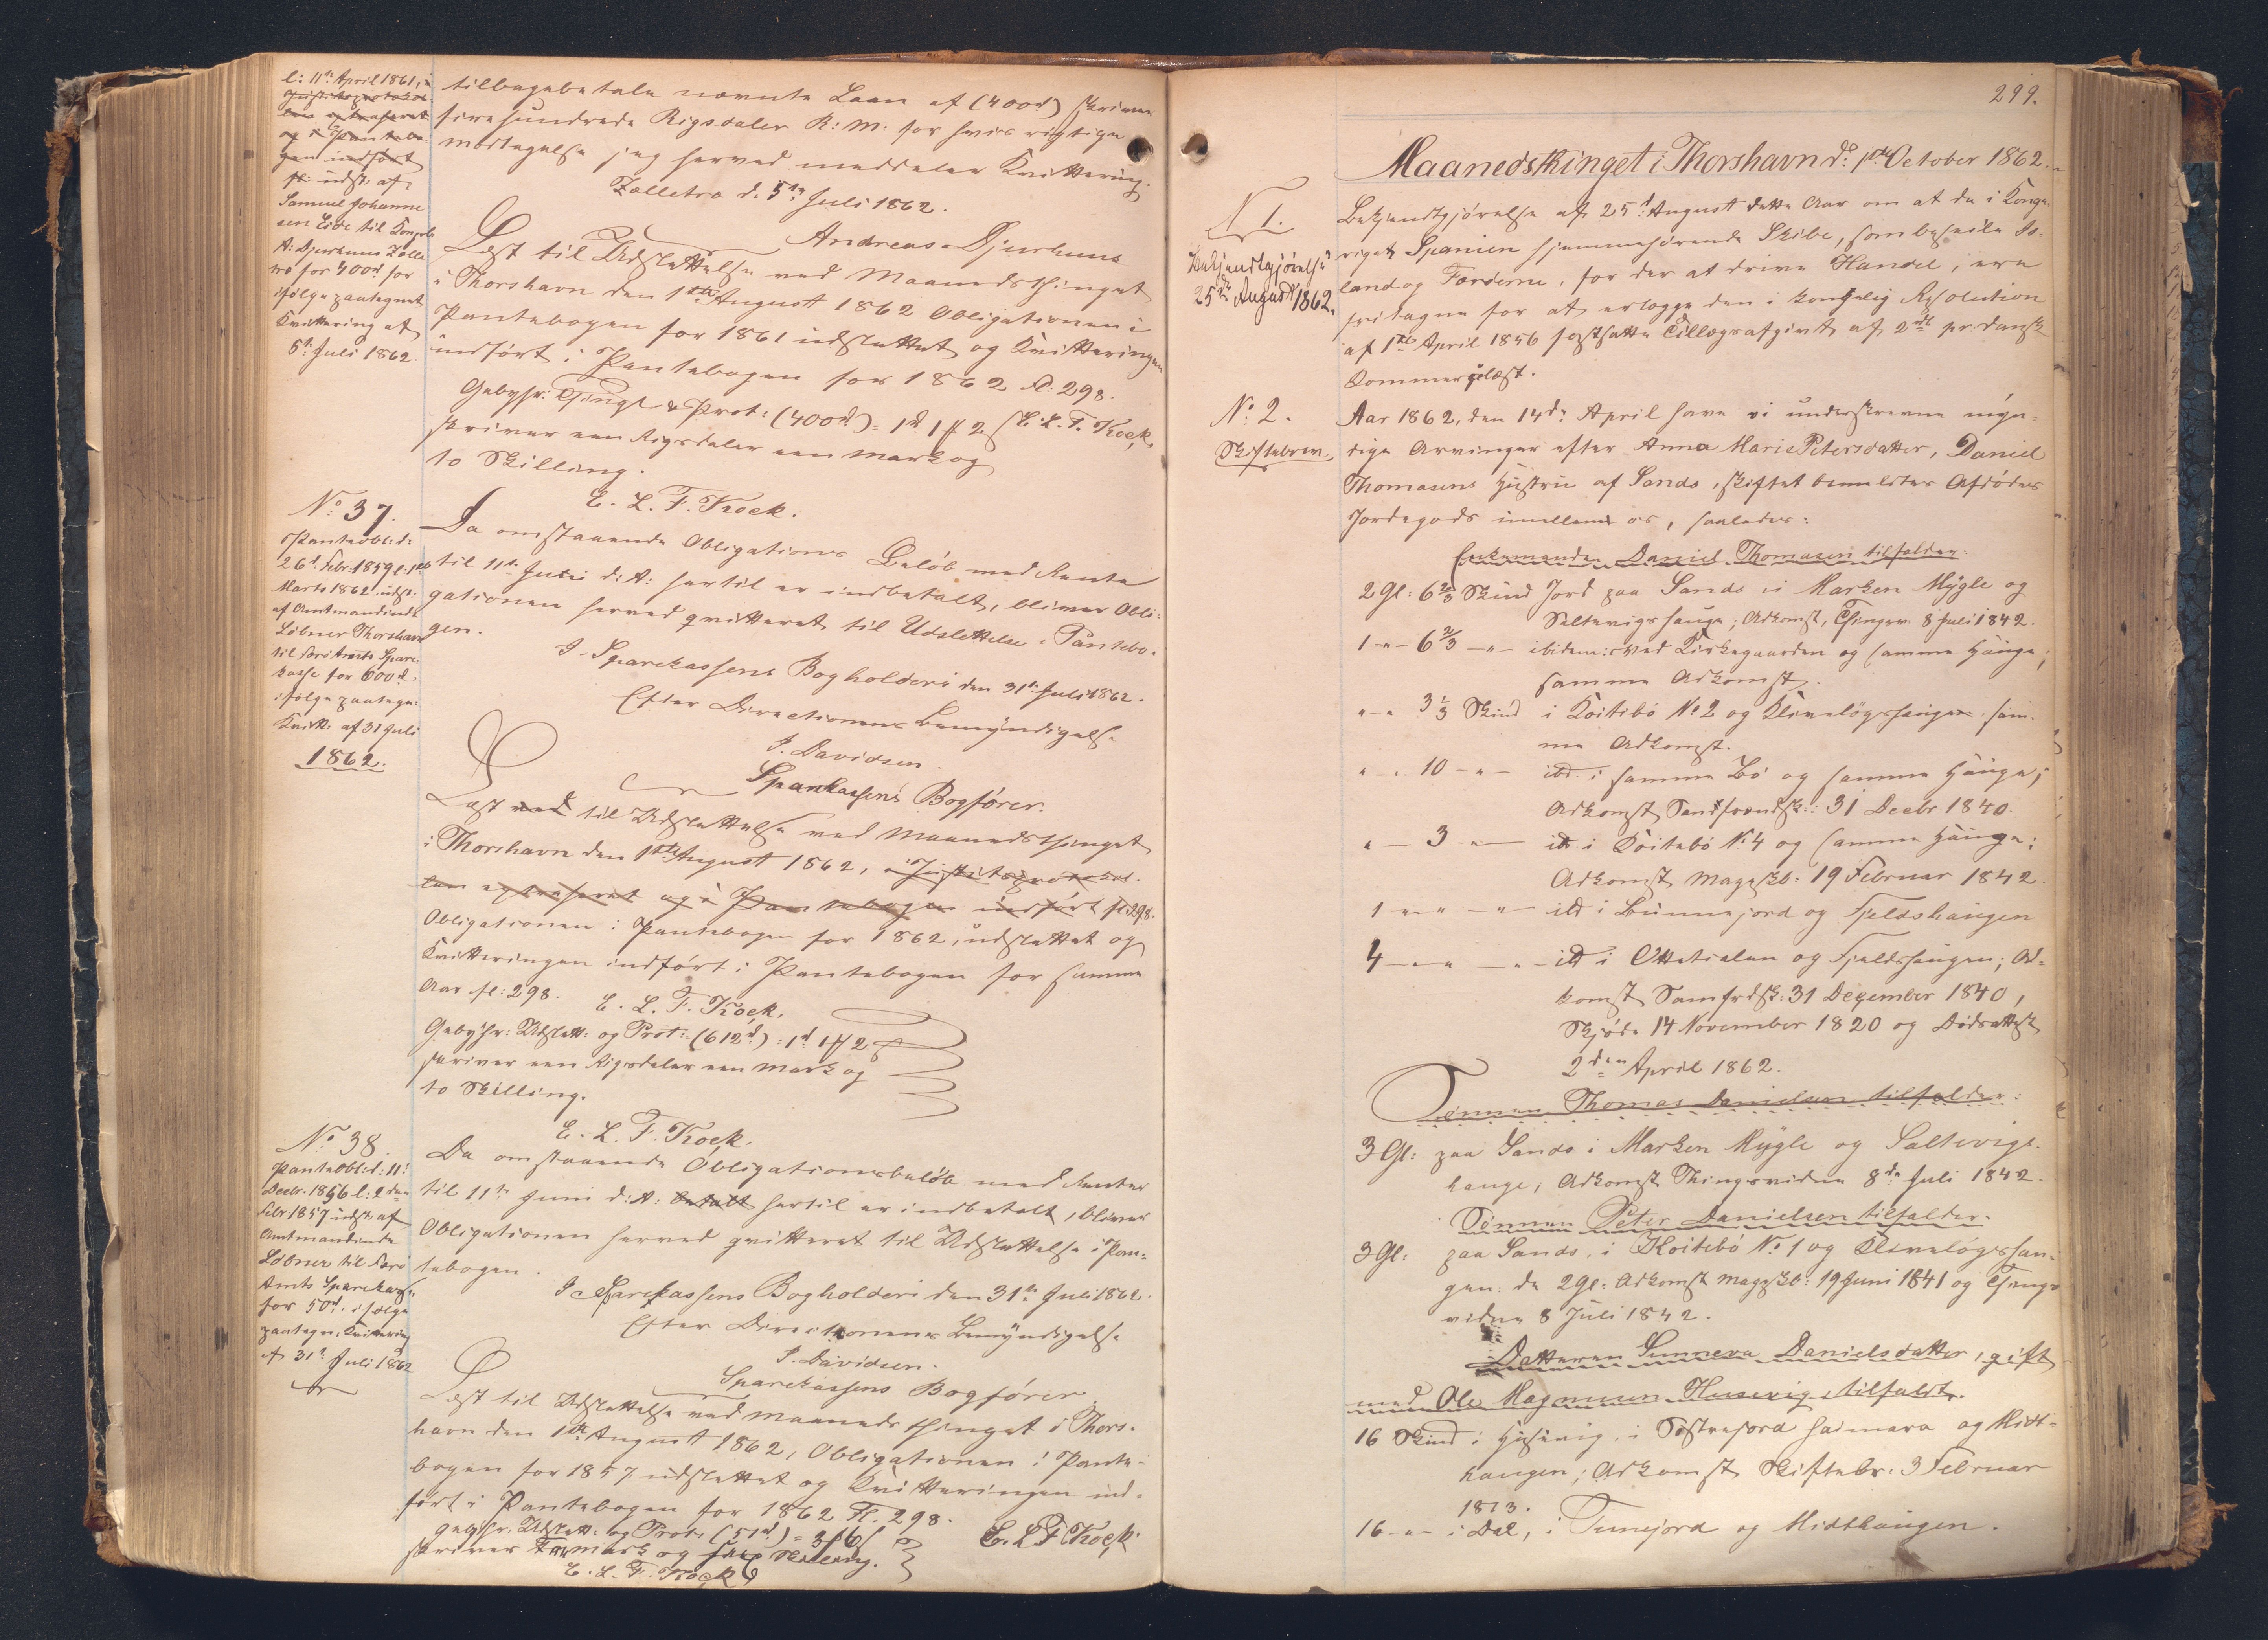 l: 11te April 1861, i
Justitsprotokol-
len extraheret
og i Pantebo-
gen indført
fl: udst: af
Samuel Johanne
sen Eide til Kongsb.
A: Djurhuus Zolle
tro for 400d for
ifølge paategnet
Kvittering af
5te Juli 1862.
tilbagebetale nævnte Laan af (400d) skriver
firehundrede Rigsdaler R: M: for hvis rigtige
modtagelse jeg herved meddeler Kvittering.
Zolletro d. 5te Juli 1862.
Andreas Djurhuus
Læst til Udslettelse ved Maanedsthinget
i Thorshavn den 1ste August 1862 Obligationen i
Pantebogen for 1861 udslettet og Kvitteringen
indført i Pantebogen for 1862 fl: 298.
E. L. F. Kock.
Gebyhr: Thingl & Prot: (400d) = 1d 1 ß 2
skriver een Rigsdaler een Mark og
to Skilling.
E. L. F. Kock.
No. 37.
Pantebl: d:
26d Febr: 1859 l: 1ste
Marts 1862 udst:
af Amtmandinde
Løbner Thorshavn
til Færø Amts Spare-
kasse for 600d.
ifølge paategn:
Kvitt: af 31 Juli
1862.
Da omstaaende Obligations Beløb med Rente
til 11te Juni d: A: hertil er indbetalt, bliver Obli-
gationen herved qvitteret til Udslettelse i Pantebo-
gen.
I Sparekassens Bogholderi den 31te Juli 1862.
Efter Directionens Bemyndigelse
J. Davidsen.
Sparekassens Bogfører.
Læst ved til Udslettelse ved Maanedsthinget
i Thorshavn den 1ste August 1862, i Justitsprotokol-
len extraheret og i Pantebogen indført fl: 298.
Obligationen i Pantebogen for 1862, udslettet og
Kvitteringen indført i Pantebogen for samme
Aar fl: 298.
E. L. F. Kock.
Gebyhr: Udslett: og Prot: (612d) = 1d 1 ß 2
skriver een Rigsdaler een Mark og
to Skilling.
E. L. F. Kock.
No. 38.
Pantebl: d: 11te
Decbr. 1856 l: 2den
Febr 1857 udst: af
Amtmandinde
Løbner til Færø
Amts Sparekasse
for 50d. ifølge
paategn. Kvittering
af 31te Juli 1862
Da omstaaende Obligationsbeløb med Renter
til 11te Juni d: A: betalt hertil er indbetalt, bliver
Obligationen herved qvitteret til Udslettelse i Pan-
tebogen.
I Sparekassens Bogholderi den 31te Juli 1862.
Efter Directionens Bemyndigelse
J. Davidsen.
Sparekassens Bogfører.
Læst til Udslettelse ved Maanedsthinget i Thors-
havn den 1ste August 1862, Obligationen i Pante-
bogen for 1857 udslettet og Kvitteringen ind-
ført i Pantebogen for 1862 Fl. 298.
E. L. F. Kock.
Gebyhr: Udslett: og Prot: (51d) = 3 ß 6
skriver Tre mark og sex Skilling.
E. L. F. Kock
299.
Maanedsthinget i Thorshavn d: 1ste October 1862.
N 1.
Bekjendtgjørelse
25de August 1862.
Bekjendtgjørelse af 25d August dette Aar om at de i Konge-
riget Spanien hjemmehørende Skibe, som beseile Is-
land og Færøerne, for der at drive Handel, ere
fritagne for at erlægge den i kongelig Resolution
af 1ste April 1856 fastsatte Tillægsafgift af 2 rd pr: dansk
Commercelæst.
No: 2.
Skiftebrev.
Aar 1862, den 14de April have vi underskrevne myn-
dige Arvinger efter Anna Marie Petersdatter, Daniel
Thomasens Hustru af Sands, skiftet bemeldtes Afdødes
Jordegods imellem os, saaledes:
Enkemanden Daniel Thomasen tilfalder:
2 Gl: 6 2/3 Skind Jord paa Sands i Marken Mygle og
Saltevigs hauge; Adkomst, Thingsv. 8 Juli 1842.
1 -"- 6 2/3 -"- ibidem: ved Kirkegaarden og samme Hauge,
samme Adkomst.
" " 3 1/3 Skind i Koitebø No 2 og Klivaløgshaugen sam-
me Adkomst.
" - " 10 -"- ibd. i samme Bø og samme Hauge;
Adkomst Samfrændsk: 31 Decbr 1840.
" - 3 -"- ibd. i Koitebø No 4 og samme Hauge;
Adkomst Mageskb: 19 Februar 1842.
1 -"- " -"- ibd i Bunnejord og Fjeldshaugen
4 -"- " -"- ibd i Ottatialen og Fjeldshaugen; Ad-
komst Samfrdsk: 31 December 1840,
Skjøde 14 November 1820 og Dødsattest
2den April 1862.
Sønnen Thomas Danielsen tilfalder:
3 Gl: paa Sands i Marken Mygle og Saltevigs-
hauge; Adkomst Thingsvidne 8de Juli 1842.
Sønnen Peter Danielsen tilfalder:
3 Gl: paa Sands, i Koitebø No 1 og Klivaløgshau-
gen: de 2 Gl: Adkomst Mageskb: 19 Juni 1841 og Things-
vidne 8 Juli 1842.
Datteren Sunneva Danielsdatter, gift
med Ole Magnusen Husevig, tilfaldt.
16 Skind i Husevig, i Søstrejord heimara og Midt-
haugen; Adkomst Skiftebr: 3 Februar
1813.
16 -"- i Dal, i Tunejord og Midthaugen.